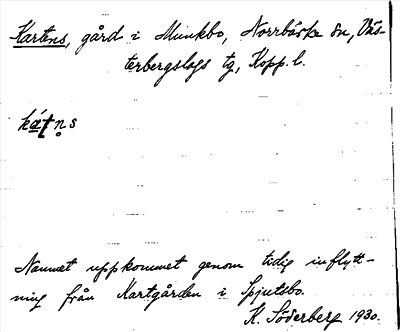 Kartens, gård i Munkbo, Norrbärke sn, Väs-
terbergslags tg, Kopp. l.
ká̱ṭṇ̥s
Namnet uppkommet genom tidig inflytt-
ning från Kartgården i Spjutsbo.
K. Söderberg 1930.